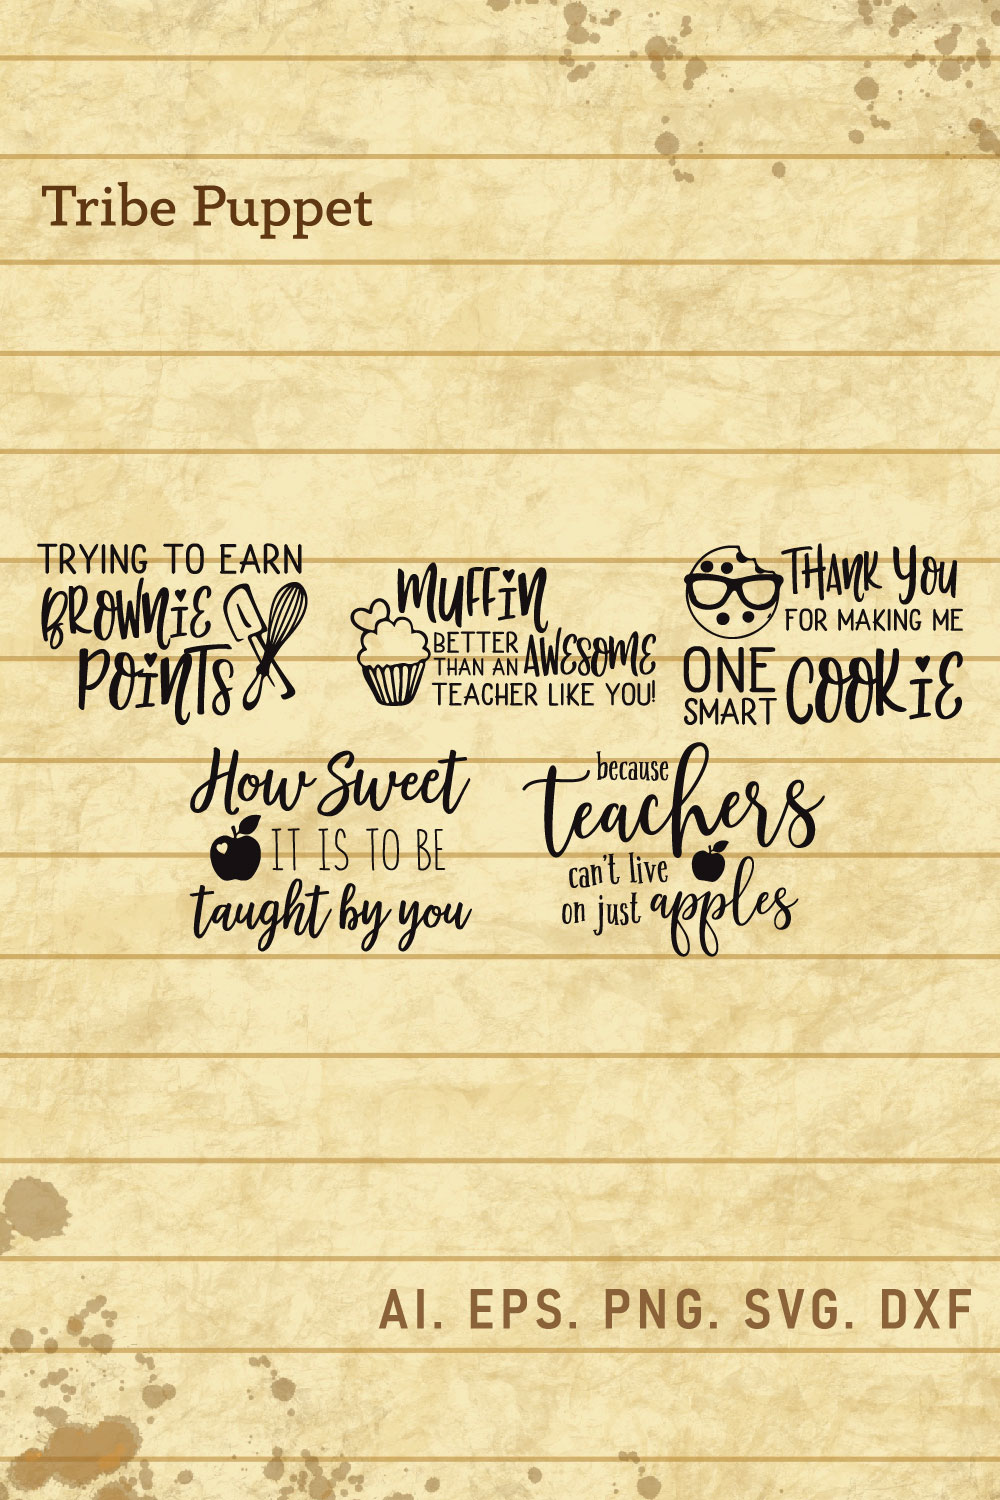 Tribe Puppet
TRYING TO EARN
BROWNiE
POiNTS
MUFFiN
BETTER
THAN AN AWESOME
TEACHER LIKE YOU!
THANK YOU
FOR MAKING ME
ONE
SMART COOKiE
How Sweet
IT IS TO BE
taught by you
because
teachers
can't live
on just apples
AI. EPS. PNG. SVG. DXF